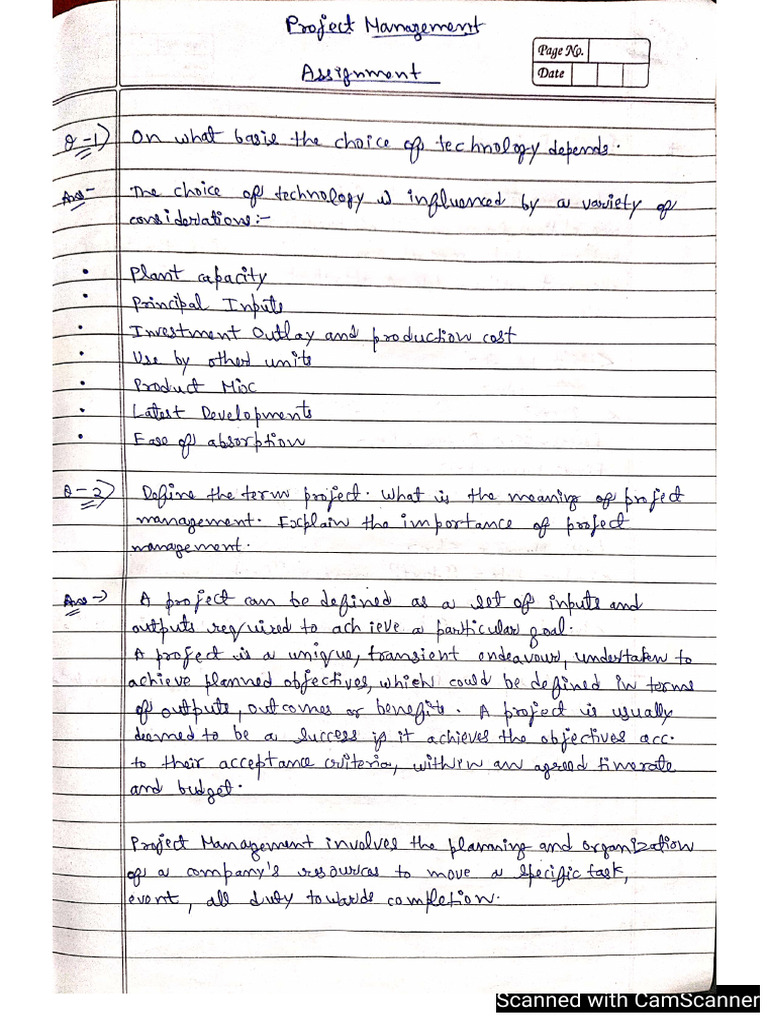 Project Management
Page No.
Assignment
Date
Q-1) On what basis the choice of technology depends.
Ans- The choice of technology is influenced by a variety of
considerations:-
• Plant capacity
• Principal Inputs
• Investment Outlay and production cost
• Use by other units
• Product Mix
• Latest Developments
• Ease of absorption
Q-2) Define the term project. What is the meaning of project
management. Explain the importance of project
management.
Ans-> A project can be defined as a set of inputs and
outputs required to achieve a particular goal.
A project is a unique, transient endeavour, undertaken to
achieve planned objectives, which could be defined in terms
of outputs, outcomes or benefits. A project is usually
deemed to be a success if it achieves the objectives acc.
to their acceptance criteria, within an agreed timerate
and budget.
Project Management involves the planning and organization
of a company's resources to move a specific task,
event, all duty towards completion.
Scanned with CamScanner